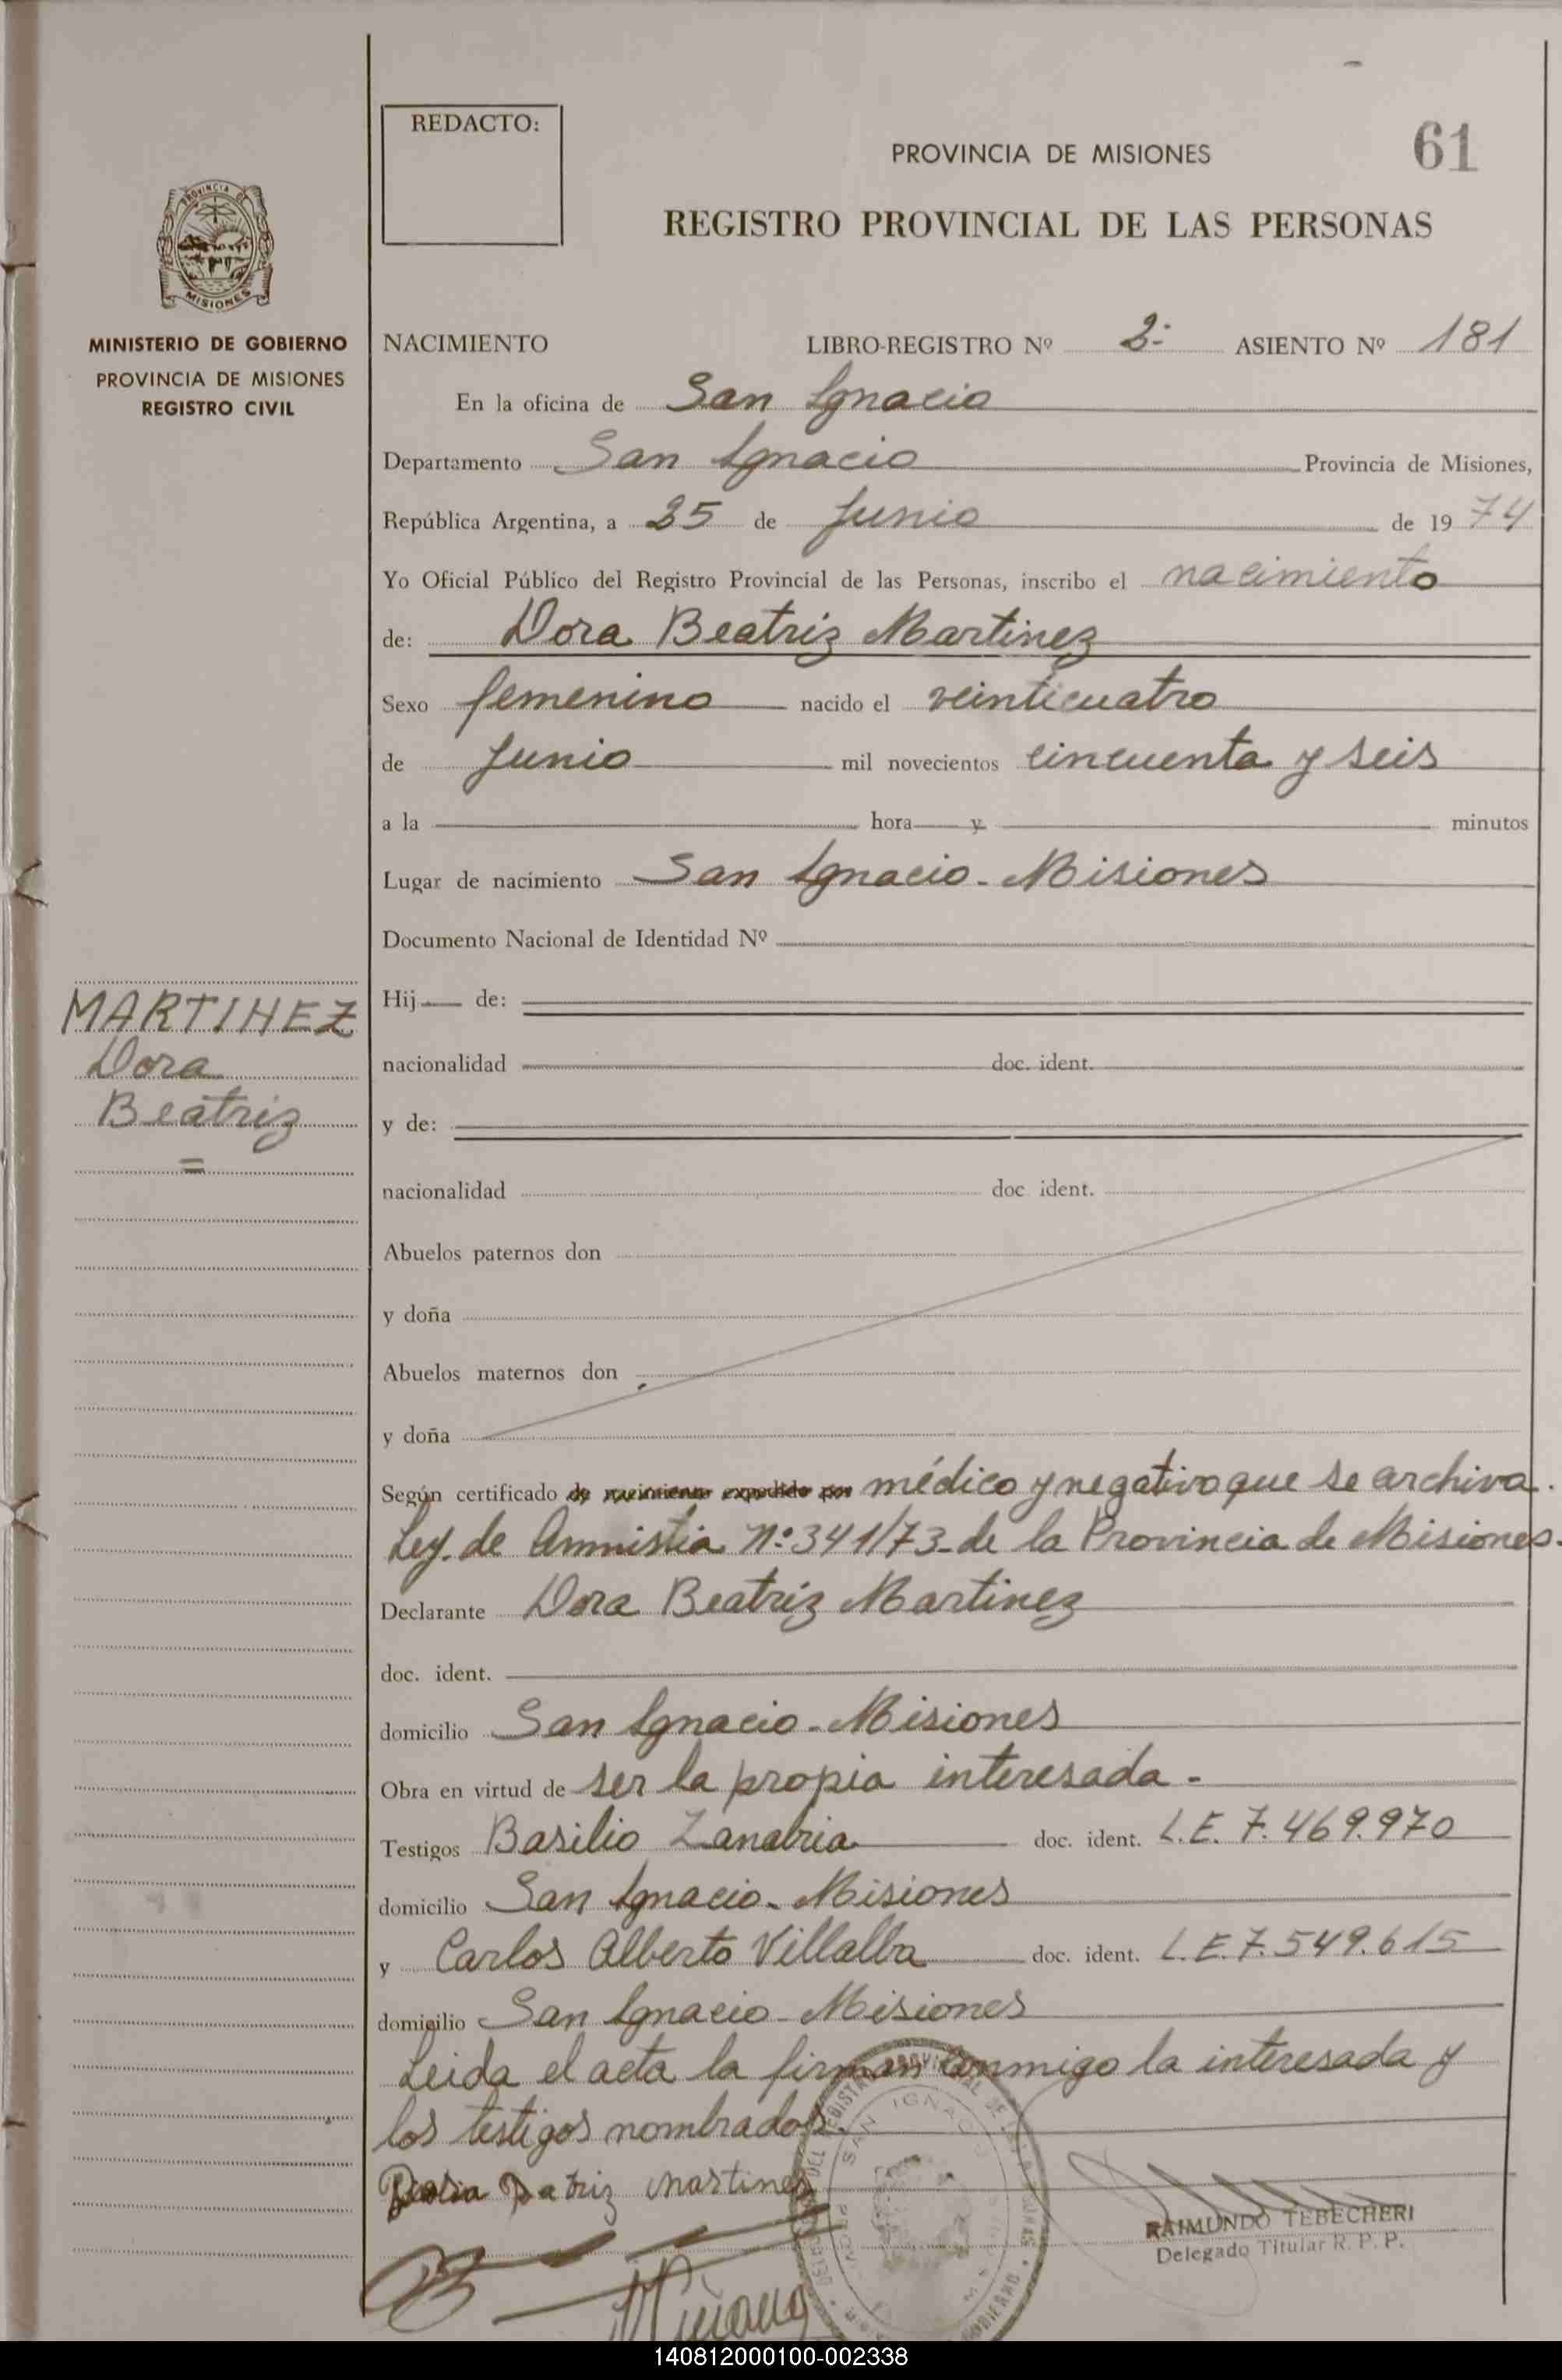 REDACTO:
PROVINCIA DE MISIONES
61
REGISTRO PROVINCIAL DE LAS PERSONAS
PROVINCIA DE
MISIONES
MINISTERIO DE GOBIERNO
PROVINCIA DE MISIONES
REGISTRO CIVIL
NACIMIENTO LIBRO-REGISTRO Nº 2: ASIENTO Nº 181
En la oficina de San Ignacio
Departamento San Ignacio Provincia de Misiones,
República Argentina, a 25 de Junio de 19 74
Yo Oficial Público del Registro Provincial de las Personas, inscribo el nacimiento
de: Dora Beatriz Martinez
Sexo femenino nacido el veinticuatro
de Junio mil novecientos cincuenta y seis
a la hora y minutos
Lugar de nacimiento San Ignacio - Misiones
Documento Nacional de Identidad Nº
MARTINEZ
Dora
Beatriz
=
Hij de:
nacionalidad doc. ident.
y de:
nacionalidad doc. ident.
Abuelos paternos don
y doña
Abuelos maternos don
y doña
Según certificado de nacimiento expedido por médico y negativo que se archiva.
Ley. de Amnistia Nº: 341/73 - de la Provincia de Misiones.
Declarante Dora Beatriz Martinez
doc. ident.
domicilio San Ignacio - Misiones
Obra en virtud de ser la propia interesada -
Testigos Basilio Zanabria doc. ident. L.E. 7.469.970
domicilio San Ignacio - Misiones
y Carlos Alberto Villalba doc. ident. L.E. 7.549.615
domicilio San Ignacio - Misiones
Leida el acta la firman conmigo la interesada y
los testigos nombrados.
Martinez
SAN IGNACIO
RAIMUNDO TEBECHERI
Delegado Titular R. P. P.
140812000100-002338